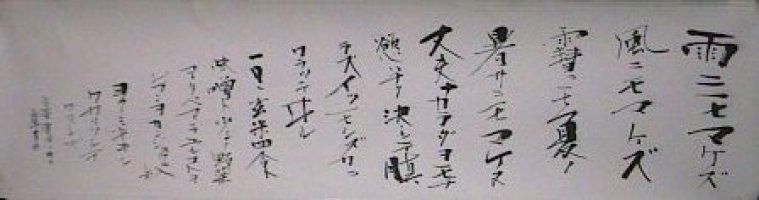 雨ニモマケズ
風ニモマケズ
雪ニモ夏ノ
暑サニモマケヌ
丈夫ナカラダヲモチ
慾ハナク決シテ瞋
ラズイツモシヅカニ
ワラッテヰル
一日ニ玄米四合ト
味噌ト少シノ野菜
ヲタベ
ジブンヲカンジョウ
ヨクミキキシ
ワカリソシテ
ワスレズ